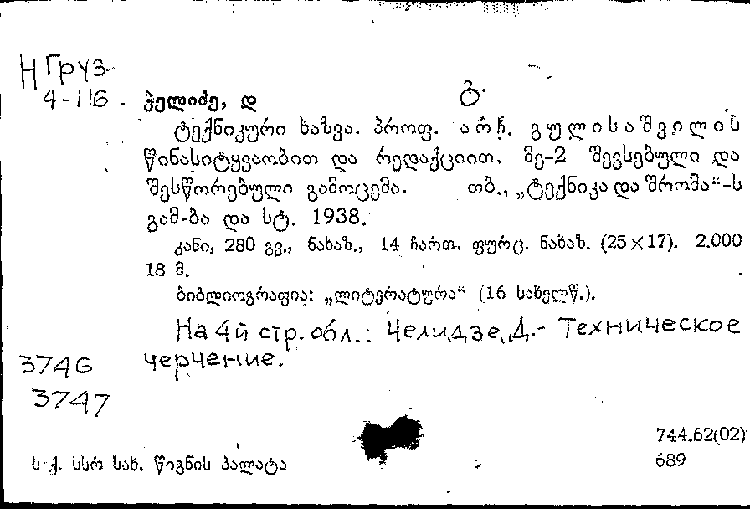 Н Груз
4-116
ჭელიძე, დ
ტექნიკური ხაზვა. პროფ. არჩ. გულისაშვილის
წინასიტყვაობით და რედაქციით. მე-2 შევსებული და
შესწორებული გამოცემა. თბ., „ტექნიკა და შრომა“-ს
გამ-ბა და სტ. 1938.
კანი, 280 გვ., ნახაზ., 14 ჩართ. ფურც. ნახაზ. (25×17). 2.000
18 მ.
ბიბლიოგრაფია: „ლიტერატურა“ (16 სახელწ.).
На 4й стр. обл.: Челидзе, Д. - Техническое
черчение.
3746
3747
744.62(02)
ს ქ. სსრ სახ. წიგნის პალატა
689